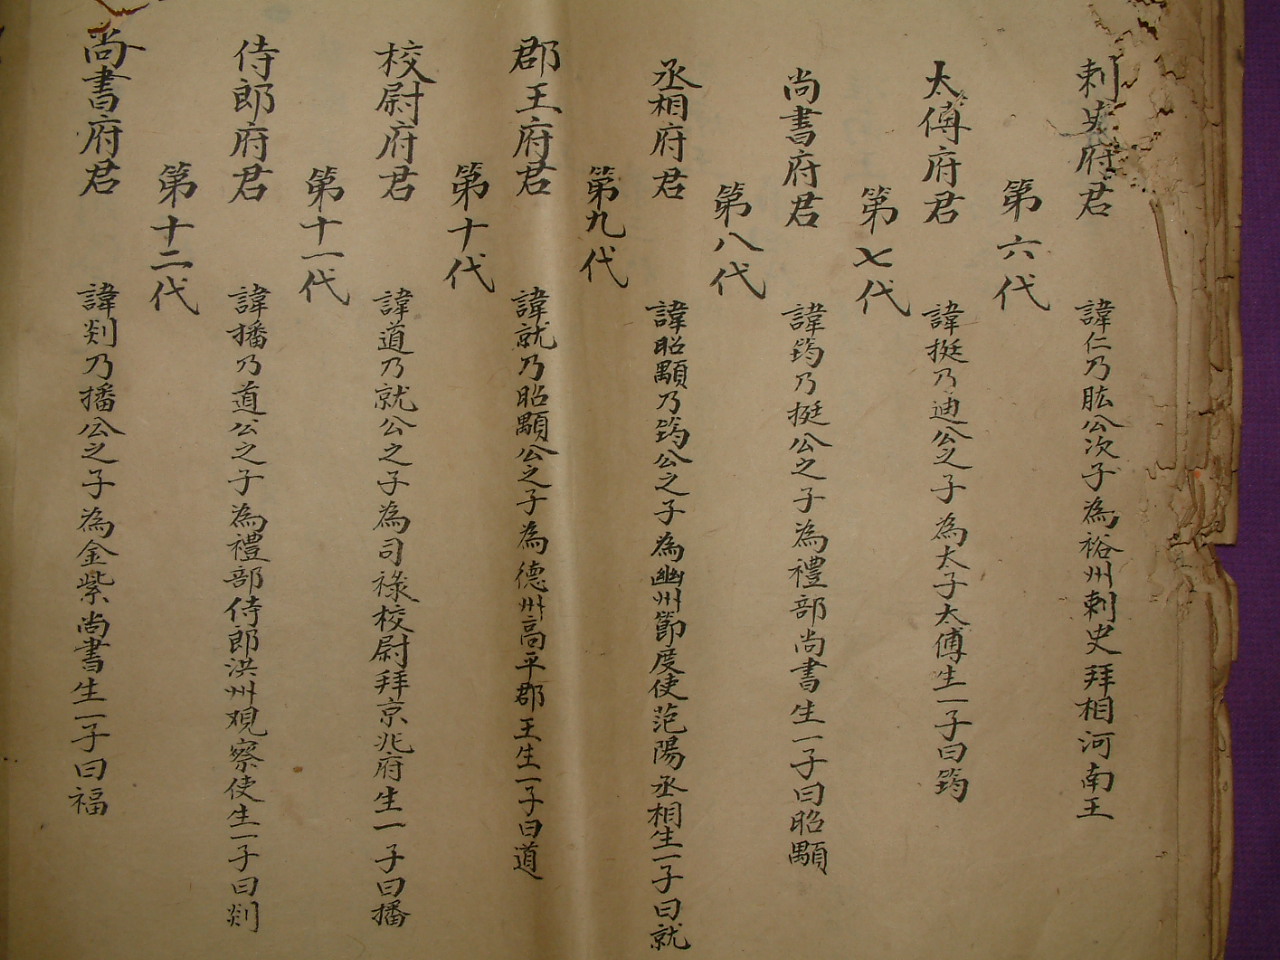 刺史府君 諱仁乃肱公次子為裕州刺史拜相河南王
第六代
太傅府君 諱挺乃迪公之子為太子太傅生一子曰筠
第七代
尚書府君 諱筠乃挺公之子為禮部尚書生一子曰昭顒
第八代
丞相府君 諱昭顒乃筠公之子為幽州節度使范陽丞相生一子曰就
第九代
郡王府君 諱就乃昭顒公之子為德州高平郡王生一子曰道
第十代
校尉府君 諱道乃就公之子為司祿校尉拜京兆府生一子曰播
第十一代
侍郎府君 諱播乃道公之子為禮部侍郎洪州觀察使生一子曰剡
第十二代
尚書府君 諱剡乃播公之子為金紫尚書生一子曰福